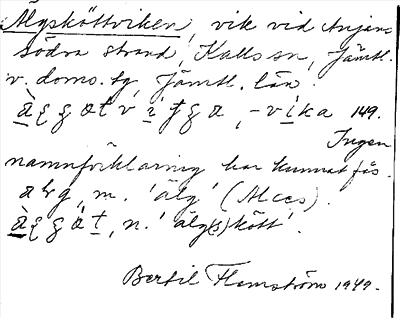 Älgsköttviken, vik vid Anjans
södra strand, Kalls sn, Jämtl.
v. doms. tg, Jämtl. län.
149.
Ingen
namnförklaring har kunnat fås.
m. 'älg' (Alces).
n. 'älg(s)kött'.
Bertil Flemström 1949.